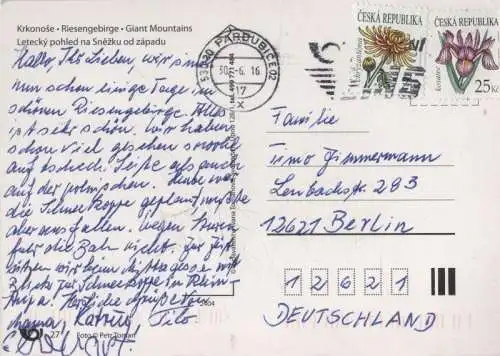 Krkonoše • Riesengebirge • Giant Mountains
Letecký pohled na Sněžku od západu
Hallo, Ihr Lieben, wir sind
nun schon einige Tage im
schönen Riesengebirge. Alles
ist sehr schön. Wir haben
schon viel gesehen sowohl
auf tschech. Seite als auch
auf der polnischen. Heute war
die Schneekoppe geplant, musste
aber ausfallen. Wegen Sturm
fuhr die Bahn nicht. Zur Zeit
sitzen wir beim Mittagessen mit
Blick zur Schneekoppe im
Herzliche Grüße
Katrin, Tilo
27
Foto © Petr Toman
530 20 PARDUBICE 02
30.-6. 16
17
x
ČESKÁ REPUBLIKA
ČESKÁ REPUBLIKA
kosatec
25 Kč
Familie
Timo Zimmermann
Lenbachstr. 283
12621 Berlin
1 2 6 2 1
DEUTSCHLAND